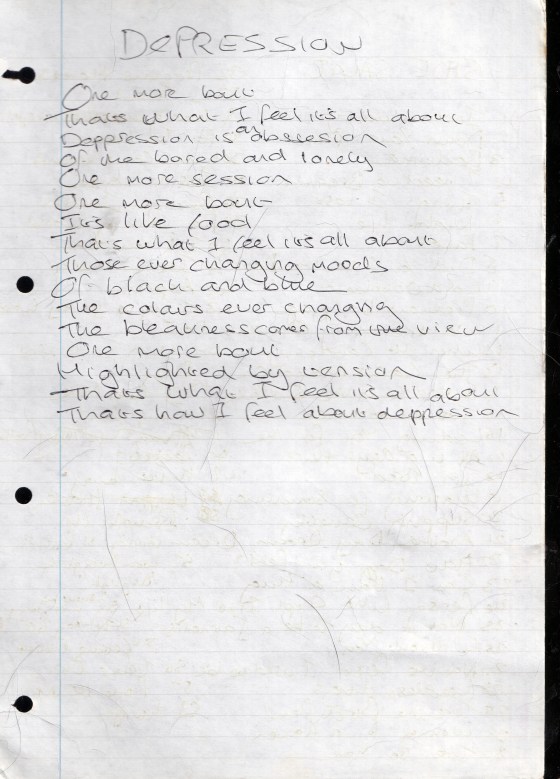 DEPRESSION
One more bout
Thats what I feel it's all about
Deppression is an obssesion
Of the bored and lonely
One more session
One more bout
It's like food
That's what I feel it's all about
Those ever changing moods
Of black and blue
The colours ever changing
The bleakness comes from the view
One more bout
Highlighted by tension
Thats what I feel it's all about
Thats how I feel about deppression